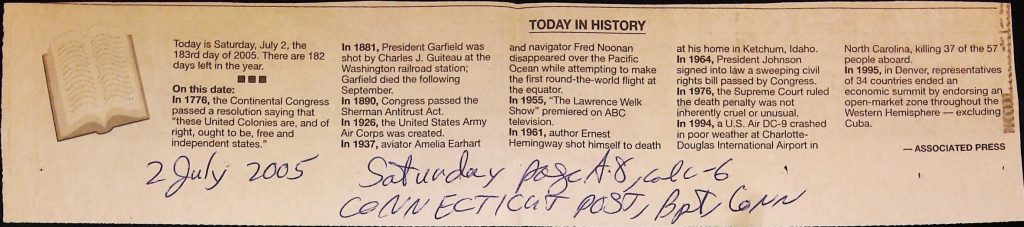 TODAY IN HISTORY
Today is Saturday, July 2, the
183rd day of 2005. There are 182
days left in the year.
On this date:
In 1776, the Continental Congress
passed a resolution saying that
"these United Colonies are, and of
right, ought to be, free and
independent states."
In 1881, President Garfield was
shot by Charles J. Guiteau at the
Washington railroad station;
Garfield died the following
September.
In 1890, Congress passed the
Sherman Antitrust Act.
In 1926, the United States Army
Air Corps was created.
In 1937, aviator Amelia Earhart
and navigator Fred Noonan
disappeared over the Pacific
Ocean while attempting to make
the first round-the-world flight at
the equator.
In 1955, "The Lawrence Welk
Show" premiered on ABC
television.
In 1961, author Ernest
Hemingway shot himself to death
at his home in Ketchum, Idaho.
In 1964, President Johnson
signed into law a sweeping civil
rights bill passed by Congress.
In 1976, the Supreme Court ruled
the death penalty was not
inherently cruel or unusual.
In 1994, a U.S. Air DC-9 crashed
in poor weather at Charlotte-
Douglas International Airport in
North Carolina, killing 37 of the 57
people aboard.
In 1995, in Denver, representatives
of 34 countries ended an
economic summit by endorsing an
open-market zone throughout the
Western Hemisphere — excluding
Cuba.
— ASSOCIATED PRESS
2 July 2005
Saturday page A8, col-6
CONNECTICUT POST, Bpt, Conn